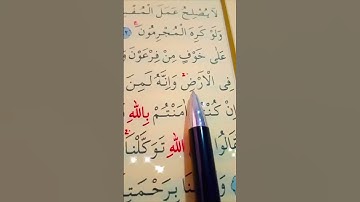 لَا يُصْلِحُ عَمَلَ الْمُفْ
وَلَوْ كَرِهَ الْمُجْرِمُونَ
عَلَى خَوْفٍ مِنْ فِرْعَوْنَ وَ
فِى الْاَرْضِ وَاِنَّهُ لَمِنَ
اِنْ كُنْتُمْ اٰمَنْتُمْ بِاللّٰهِ
قَالُوا عَلَى اللّٰهِ تَوَكَّلْنَا
بِرَحْمَتِ